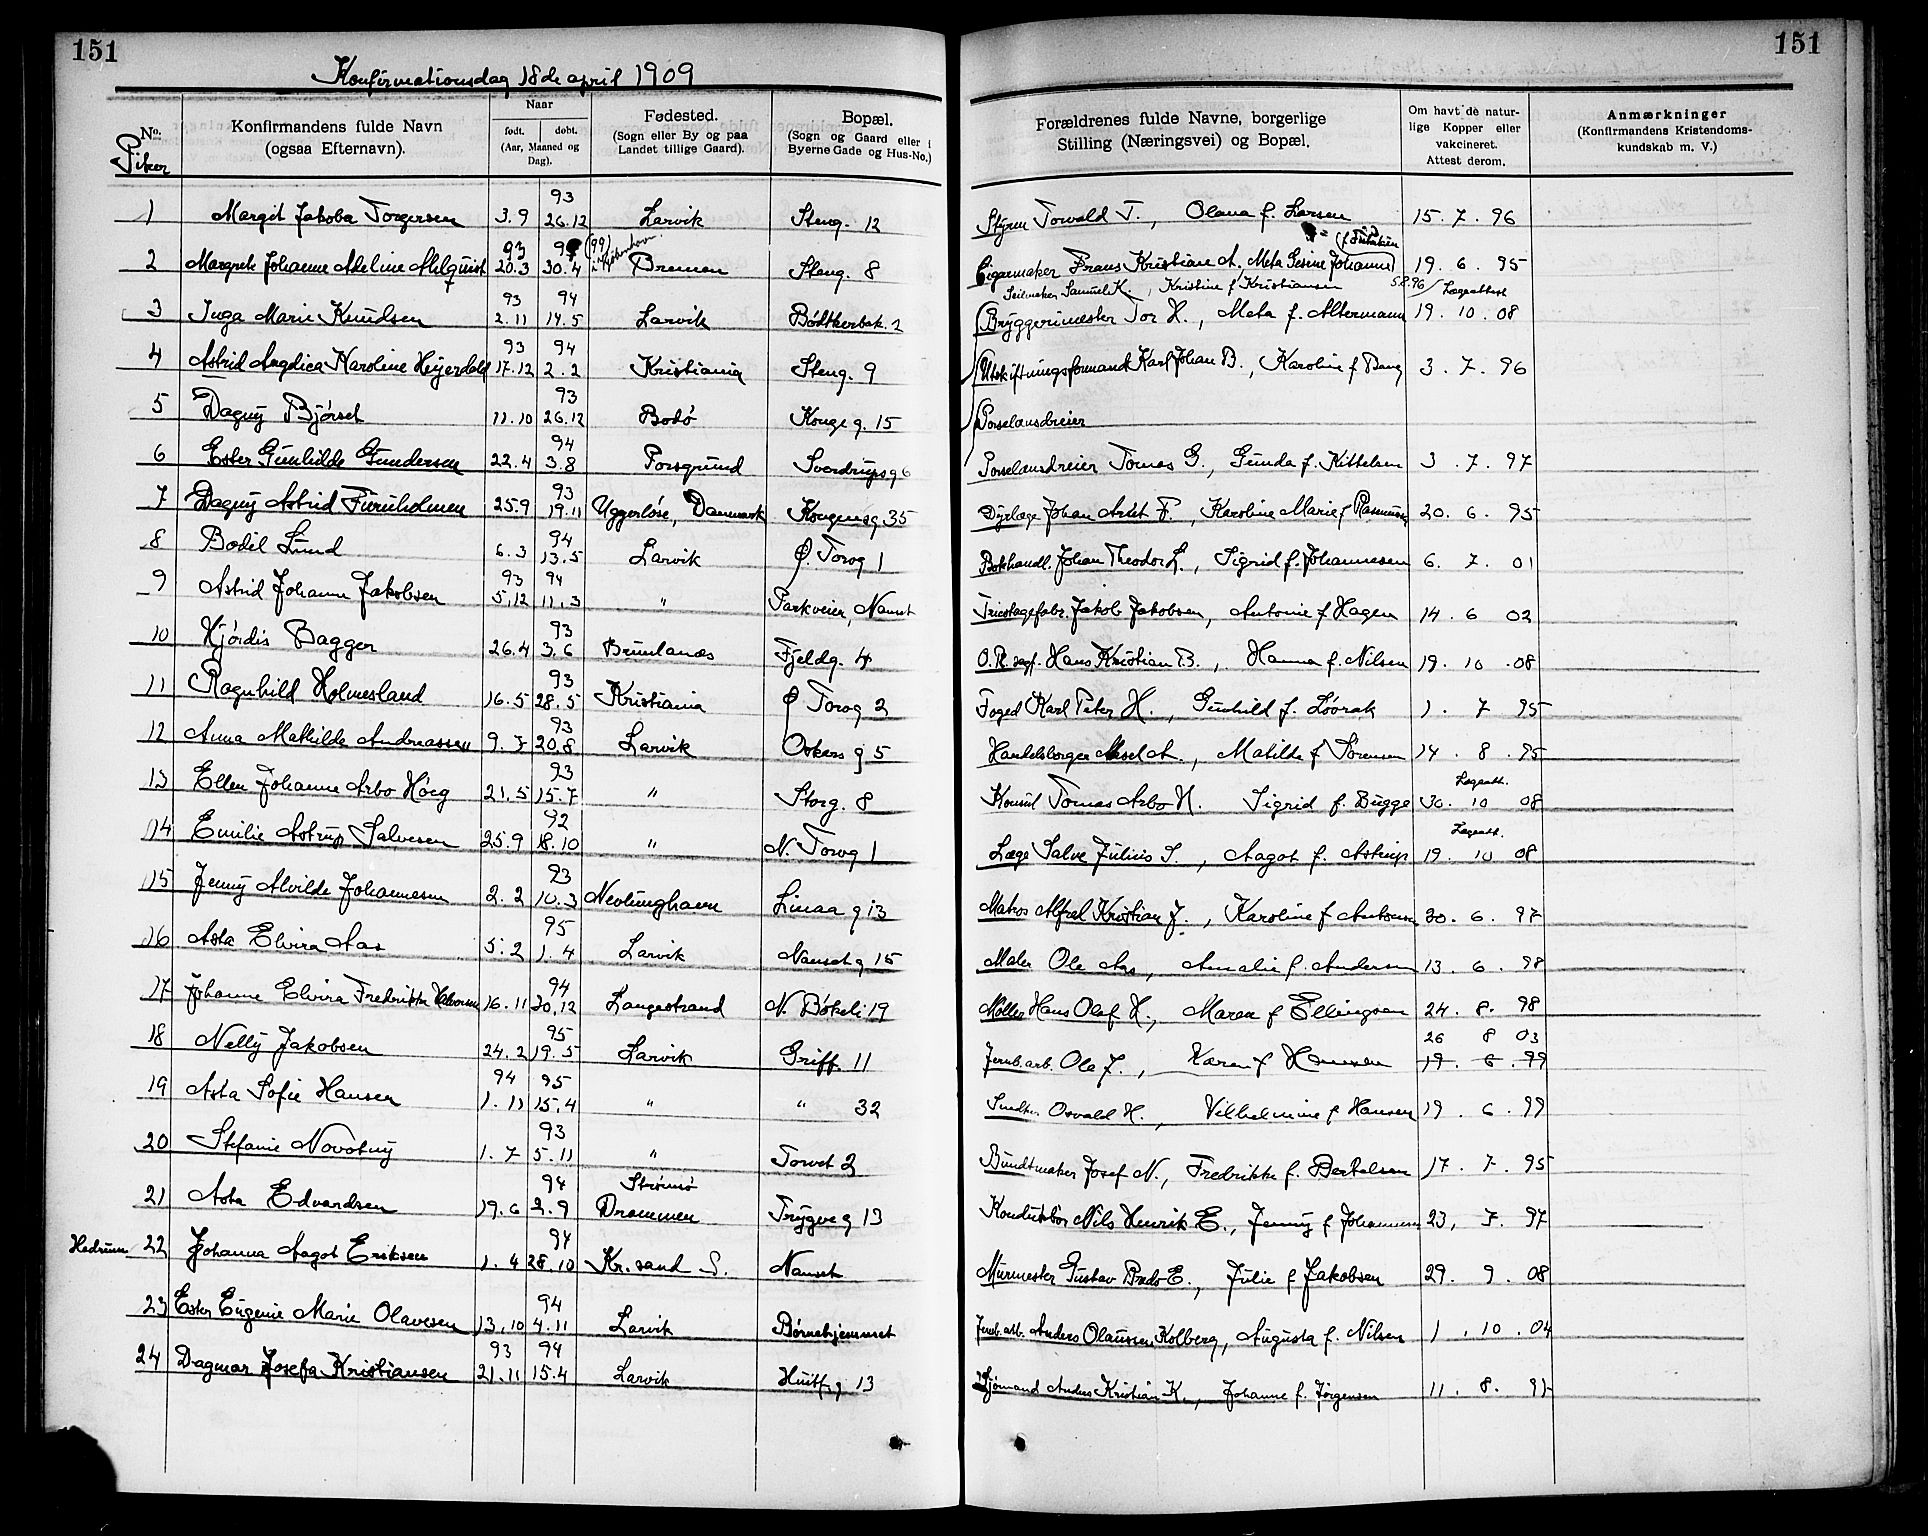 151
151
Konfirmationsdag 18de april 1909
No.
Piker
Konfirmandens fulde Navn
(ogsaa Efternavn).
Naar
født. døbt.
(Aar, Maaned og Dag).
Fødested.
(Sogn eller By og paa
Landet tillige Gaard).
Bopæl.
(Sogn og Gaard eller i
Byerne Gade og Hus-No.)
Forældrenes fulde Navne, borgerlige
Stilling (Næringsvei) og Bopæl.
Om havt de natur-
lige Kopper eller
vakcineret.
Attest derom.
Anmærkninger
(Konfirmandens Kristendoms-
kundskab m. V.)
93
1 Margit Jakoba Torgersen 3.9 26.12 Larvik Steng. 12 Styrm Torvald T., Olana f. Larsen 15.7.96
93 (99) i Kjøbenhavn
2 Margrete Johanne Adeline Ahlquist 20.3 30.4 Bremen Steng. 8 Cigarmaker Frans Kristian A. Meta Gesine Johanne 19.6.95
Seilmaker Samuel K., Kristine f. Kristiansen 5.8.96 / Lægeattest
93 94
3 Inga Marie Knudsen 2.11 14.5 Larvik Bødkerbak. 2 Bryggerimester Tor H., Meta f. Altermann 19.10.08
93 94
4 Astrid Angelica Karoline Heyerdahl 17.12 2.2 Kristiania Steng. 9 Utskiftningsformand Karl Johan B., Karoline f. Bang 3.7.96
93
5 Dagny Bjørset 11.10 26.12 Bodø Kongeg. 15 Porselansdreier
94
6 Ester Gunhilde Gundersen 22.4 3.8 Porsgrund Sverdrupsg 6 Porselansdreier Tomas G., Gunda f. Kittelsen 3.7.97
93
7 Dagny Astrid Furuholmen 25.9 19.11 Uggerløse, Danmark Kongensg 35 Dyrlæge Johan Arlet F., Karoline Marie f Rasmussen 20.6.95
94
8 Bodil Lund 6.3 13.5 Larvik Ø. Torvg 1 Bokhandl. Johan Theodor L., Sigrid f. Johannesen 6.7.01
93 94
9 Astrid Johanne Jakobsen 5.12 11.3 " Parkveien, Nanset Tricotagefabr. Jakob Jakobsen, Antonie f Hagen 14.6 02
93
10 Hjørdis Bagger 26.4 3.6 Brunlanæs Fjeldg. 4 O.R. sagf. Hans Kristian B., Hanna f. Nilsen 19.10.08
93
11 Ragnhild Holmesland 16.5 28.5 Kristiania Ø Torvg 2 Foged Karl Peter H., Gunhild f. Løvrak 1.7 95
93
12 Anna Mathilde Andreassen 9.7 20.8 Larvik Oskars g 5 Handelsborger Aksel A., Matilde f Sørensen 14.8.95
93 Lægeatt.
13 Ellen Johanne Arbo Høeg 21.5 15.7 " Storg. 8 Konsul Tomas Arbo H. Sigrid f. Bugge 30.10 08
92 Lægeatt.
14 Emilie Astrup Salvesen 25.9 18.10 " N. Torvg 1 Læge Salve Julius S., Aagot f. Astrup 19.10 08
93
15 Jenny Alvilde Johannesen 2.2 10.3 Nevlunghavn Linaa g 13 Matros Alfred Kristian J., Karoline f Antonsen 30.6.97
95
16 Asta Elvira Aas 5.2 1.4 Larvik Nanset g 15 Maler Ole Aas, Amalie f. Andersen 13.6.98
94
17 Johanne Elvira Fredrikke Halvorsen 16.11 30.12 Langestrand N. Bøkeli 19 Møller Hans Olaf H., Maren f Ellingsen 24.8.98
95 26 8 03
18 Nelly Jakobsen 24.2 19.5 Larvik Griff. 11 Jernb.arb. Ole J., Karen f Hansen 19.6.99
94 95
19 Asta Sofie Hansen 1.11 15.4 " " 32 Smedm. Osvald H., Vilhelmine f Hansen 19.6.99
93
20 Stefanie Novotny 1.7 5.11 " Torvet 2 Bundtmaker Josef N., Fredrikke f. Bertelsen 17.7.95
94 Strømsø
21 Asta Edvardsen 19.6 2.9 Drammen Trygve g 13 Konduktør Nils Henrik E., Jenny f Johannesen 23, 7.97
94
Hedrum 22 Johanna Aagot Eriksen 1.4 28.10 Kr.sand S. Nanset Murmester Gustav Bredo E., Julie f Jakobsen 29.9.08
94
23 Ester Eugenie Marie Olavesen 13.10 4.11 Larvik Børnehjemmet Jernb.arb. Anders Olaussen Kolberg, Augusta f. Nilsen 1.10.04
93 94
24 Dagmar Josefa Kristiansen 21.11 15.4 Larvik Huitf. g 13 Sjømand Anders Kristian K., Johanne f. Jørgensen 11.8.97